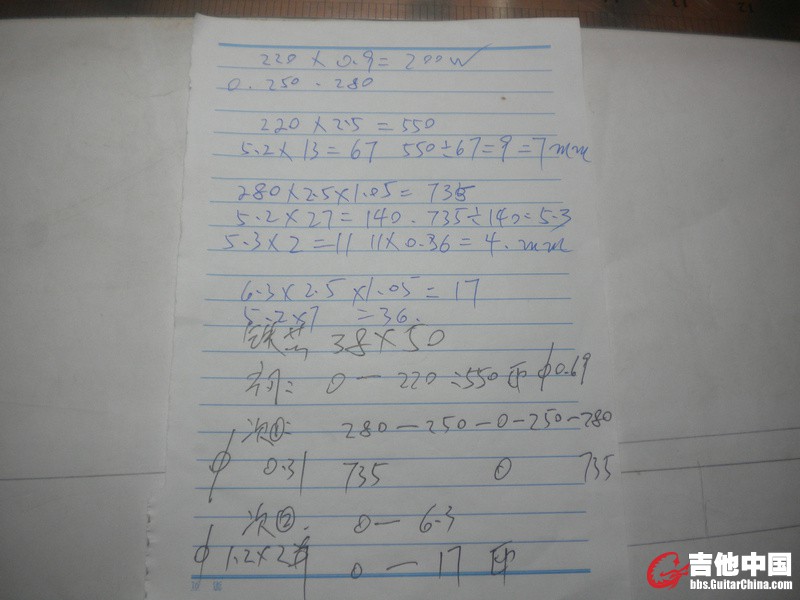 220 × 0.9 = 200W
0. 250 . 280
220 × 2.5 = 550
5.2 × 13 = 67 550 ÷ 67 = 9 = 7mm
280 × 2.5 × 1.05 = 735
5.2 × 27 = 140. 735 ÷ 140 = 5.3
5.3 × 2 = 11 11 × 0.36 = 4. mm
6.3 × 2.5 × 1.05 = 17
5.2 × 7 = 36.
铁芯 38 × 50
初: 0 — 220 = 550 匝 φ0.69
次①: 280 — 250 — 0 — 250 — 280
φ 0.31 735 0 735
次②: 0 — 6.3
φ 1.2×2 0 — 17 匝
吉他中国
bbs.GuitarChina.com